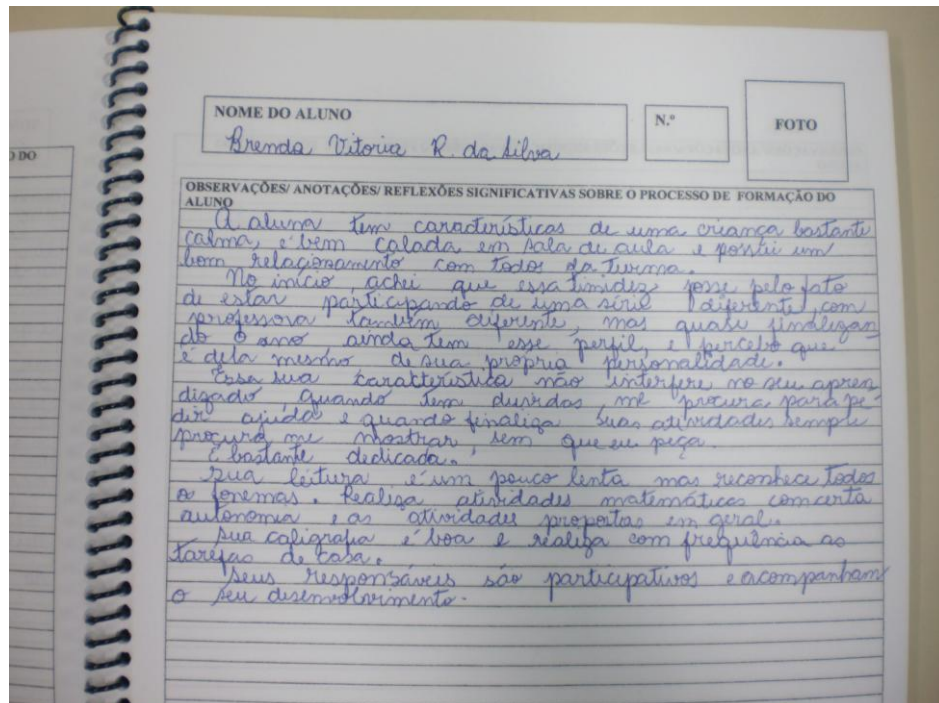 DO DO
NOME DO ALUNO
N.º
FOTO
Brenda Vitoria R. da Silva
OBSERVAÇÕES/ ANOTAÇÕES/ REFLEXÕES SIGNIFICATIVAS SOBRE O PROCESSO DE FORMAÇÃO DO
ALUNO
A aluna tem características de uma criança bastante
calma, é bem calada em sala de aula e possui um
bom relacionamento com todos da turma.
No início, achei que essa timidez fosse pelo fato
de estar participando de uma série diferente, com
professora também diferente, mas quase finalizan
do o ano, ainda tem esse perfil, e percebo que
é dela mesmo de sua própria personalidade.
Essa sua característica não interfere no seu apren
dizado, quando tem duvidas, me procura para pe-
dir ajuda e quando finaliza suas atividades sempre
procura me mostrar, sem que eu peça.
É bastante dedicada.
Sua leitura é um pouco lenta mas reconhece todos
os fonemas. Realiza atividades matemáticas com certa
autonomia e as atividades propostas em geral.
Sua caligrafia é boa e realiza com frequência as
tarefas de casa.
Seus responsáveis são participativos e acompanham
o seu desenvolvimento.